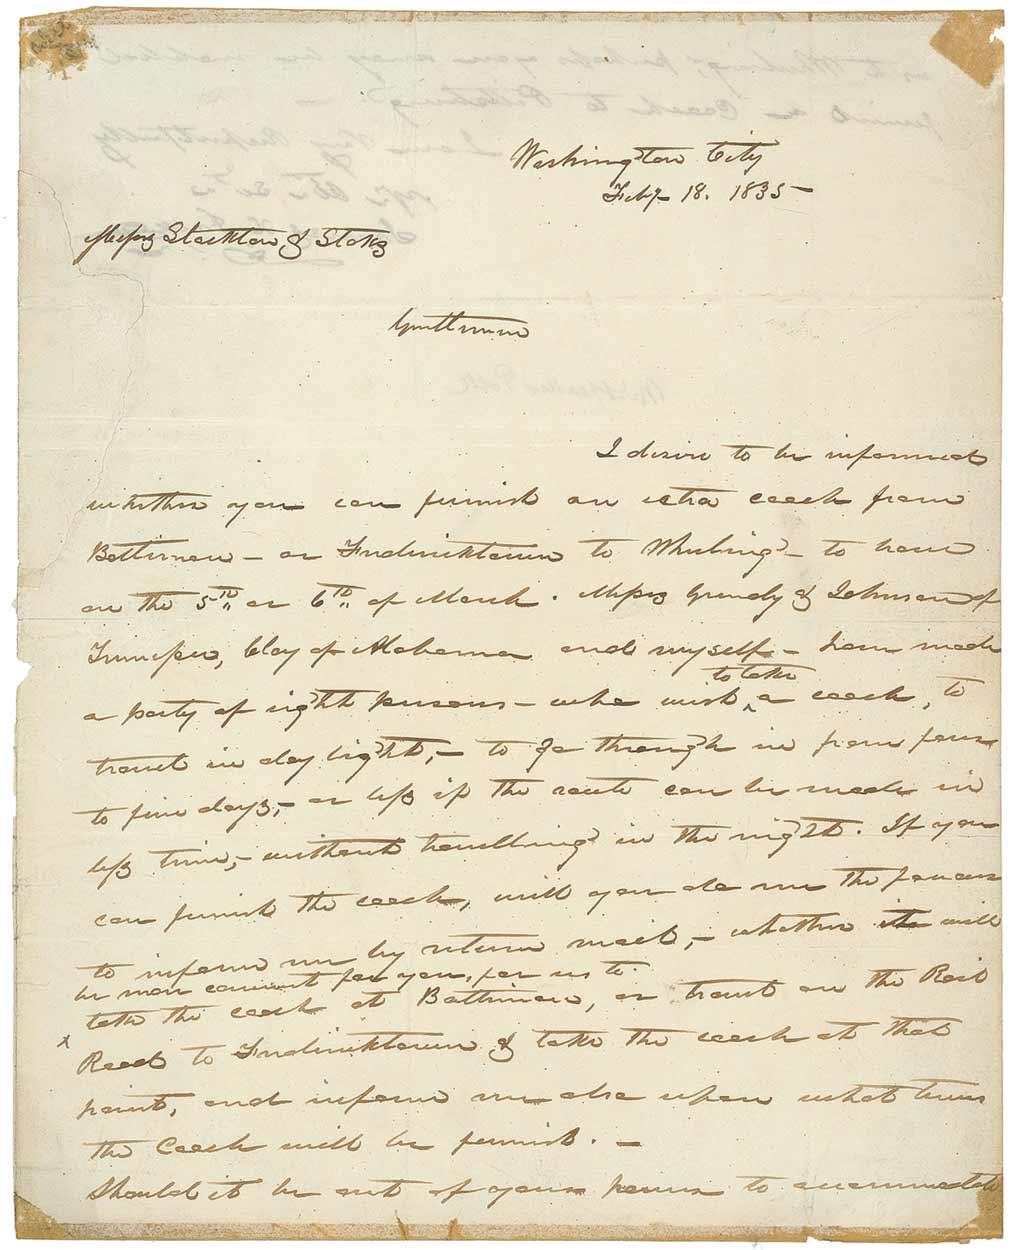 Washington City
Feby 18. 1835 –
Messrs Stockton & Stokes
Gentlemen
I desire to be informed
whether you can furnish an extra coach from
Baltimore – or Fredericktown to Wheeling – to leave
on the 5th or 6th of March. Messrs Grundy & Johnson of
Tennessee, Clay of Alabama and myself – have made
to take
a party of eight persons – who wish ^ a coach, to
travel in day light, – to go through in from four
to five days, – or less if the route can be made in
less time, – without travelling in the night. If you
can furnish the coach, will you do me the favour
to inform me by return mail, – whether it will
be more convent for you, for us to
take the coach at Baltimore, or travel on the Rail
x Road to Fredericktown & take the coach at that
point, and inform me also upon what terms
the Coach will be furnish. –
Should it be out of your power to accommodate